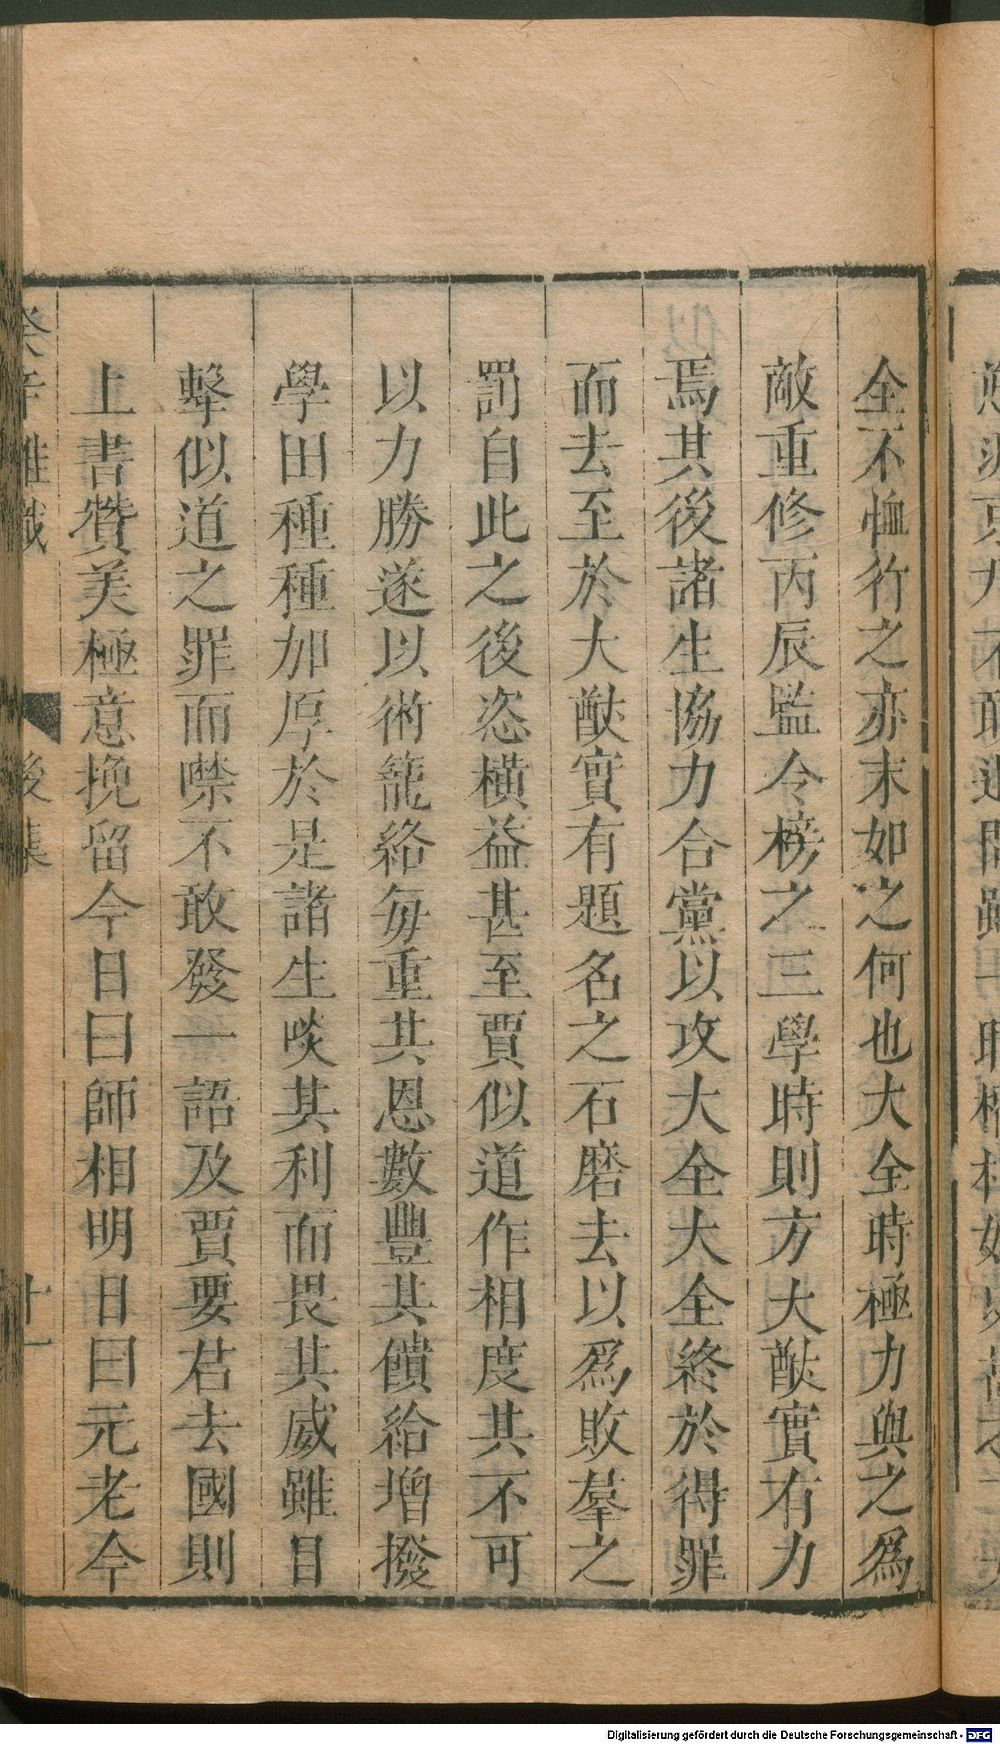 全不恤行之亦末如之何也大全時極力與之爲
敵重修丙辰監令榜之三學時則方大猷實有力
焉其後諸生協力合黨以攻大全大全終於得罪
而去至於大猷實有題名之石磨去以爲敗羣之
罰自此之後恣橫益甚至賈似道作相度其不可
以力勝遂以術籠絡每重其恩數豐其饋給增撥
學田種種加厚於是諸生啖其利而畏其威雖目
擊似道之罪而噤不敢發一語及賈要君去國則
上書贊美極意挽留今日曰師相明日曰元老今
癸辛雜識
後集
十一
Digitalisierung gefördert durch die Deutsche Forschungsgemeinschaft - DFG